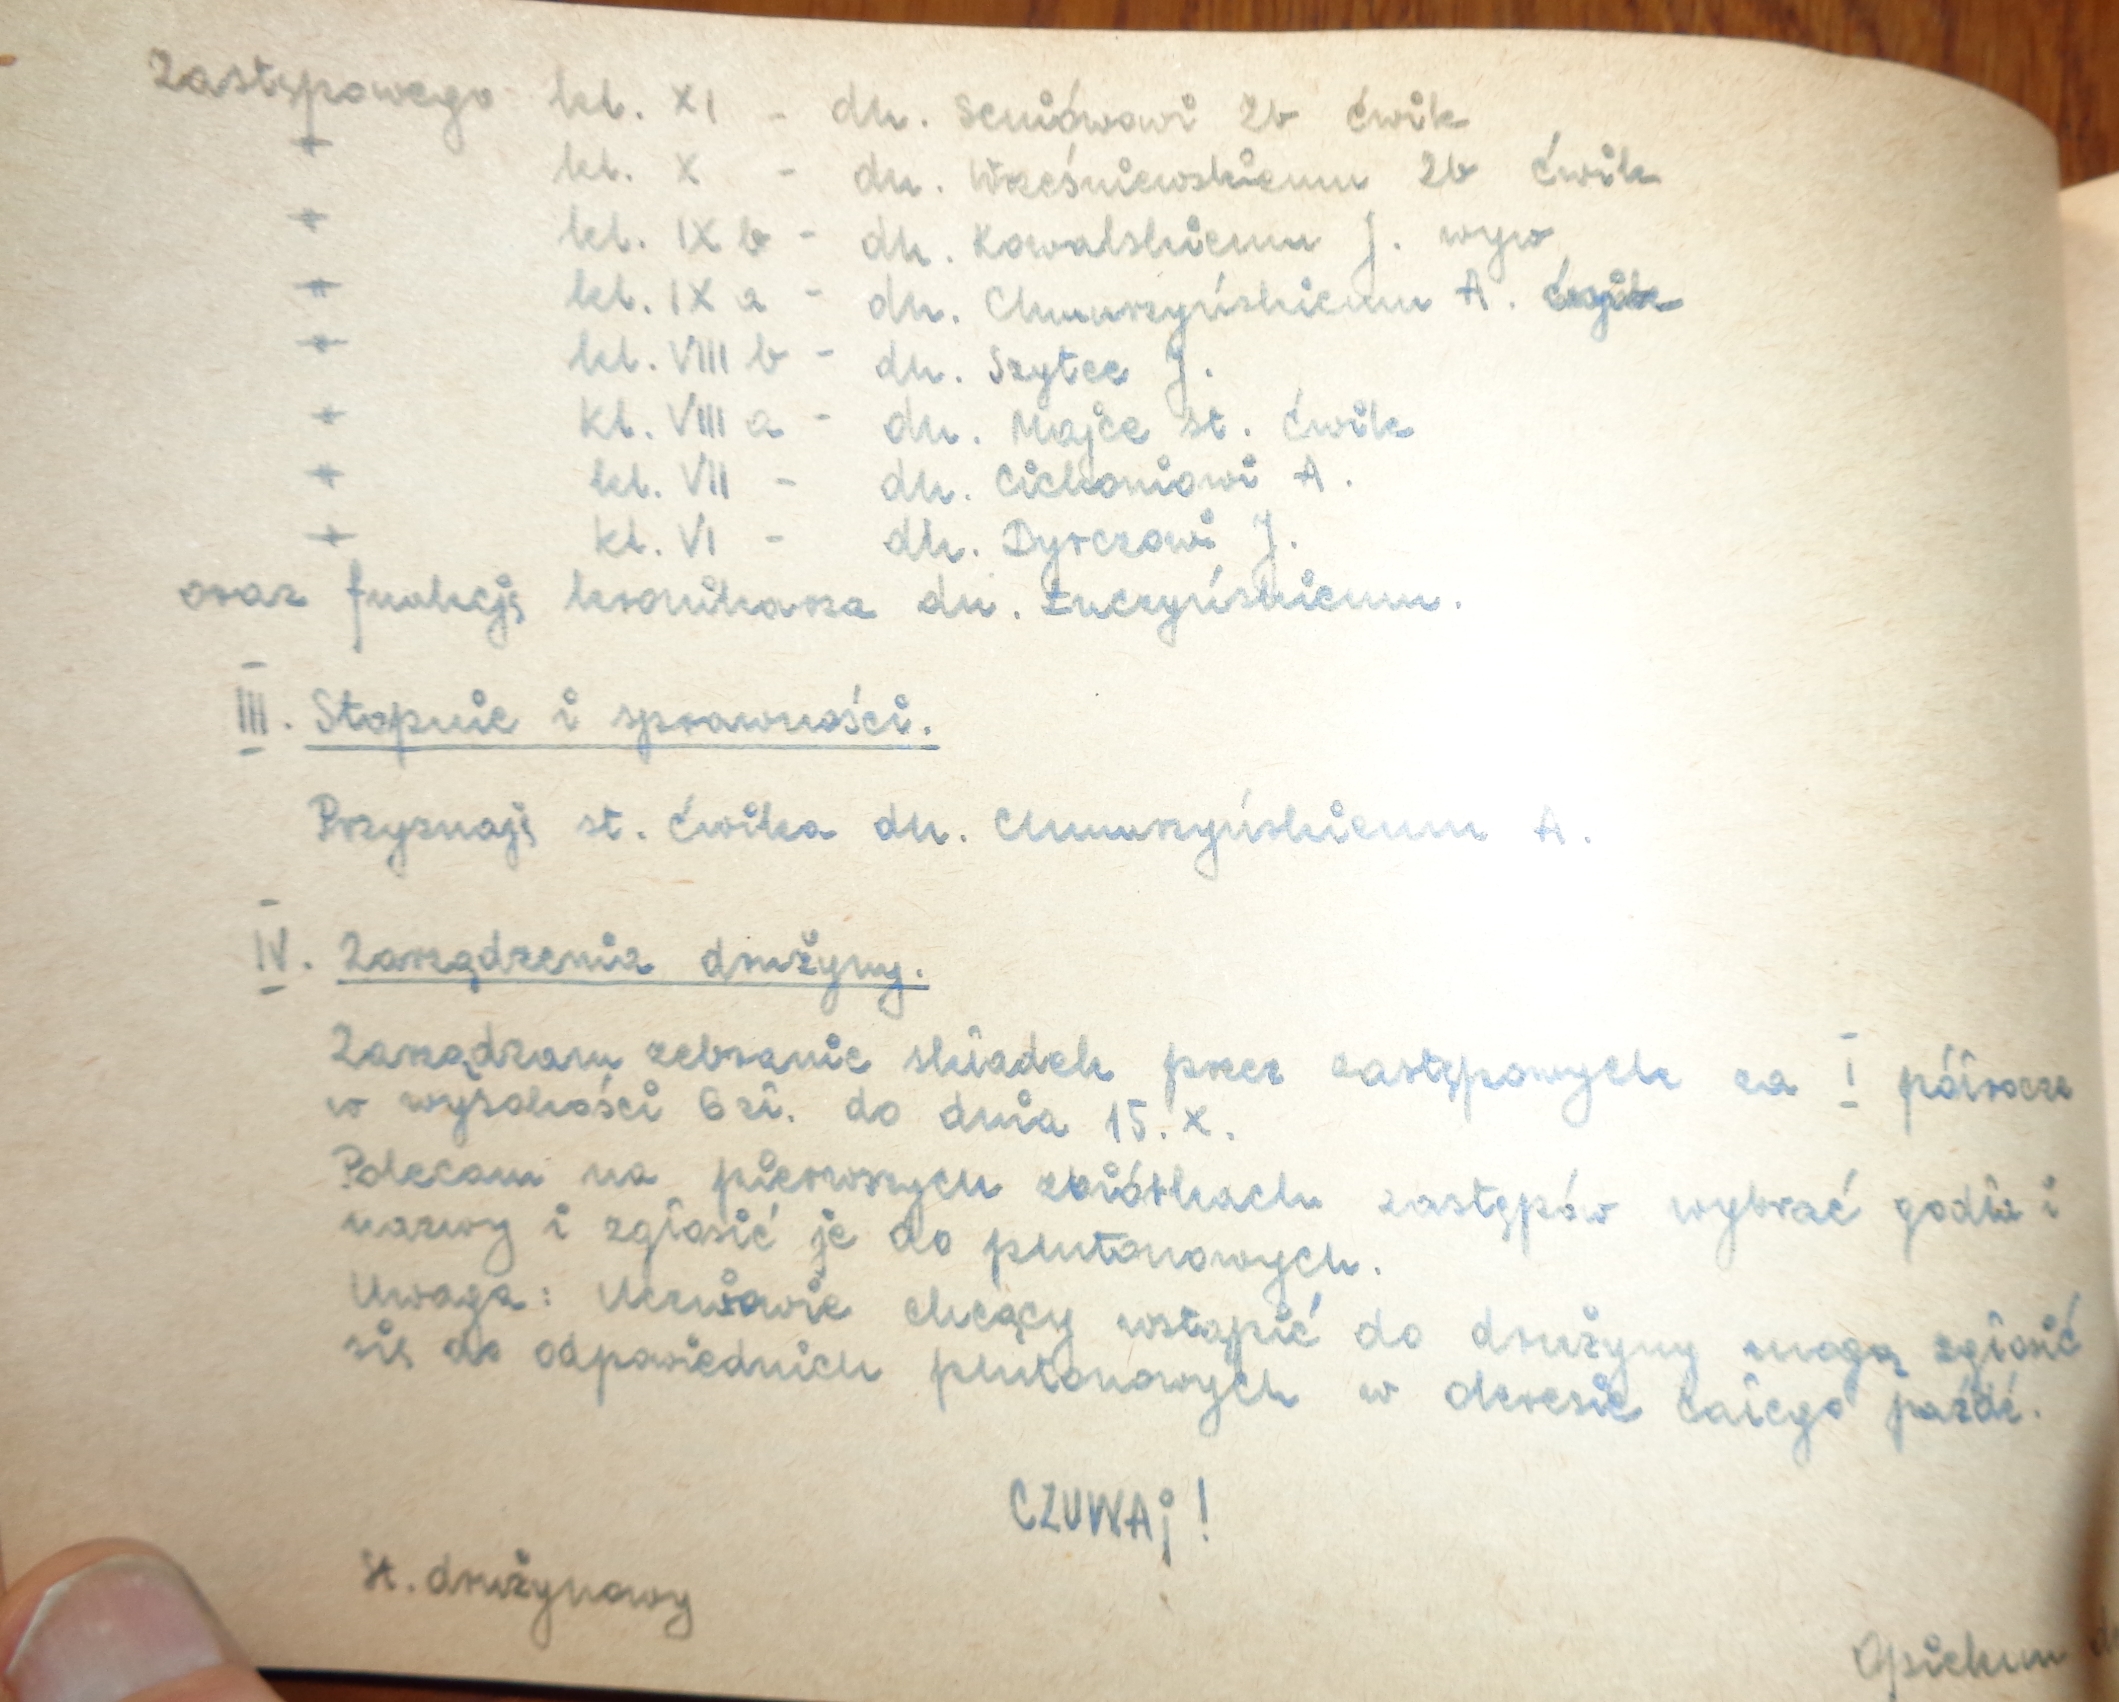 Zastępowego kl. XI - dh. Seniówowi Zb ćwik
-"- kl. X - dh. Wrześniewskiemu Zb ćwik
-"- kl. IX b - dh. Kowalskiemu J. wyw
-"- kl. IX a - dh. Chmurzyńskiemu A. ćwik
-"- kl. VIII b - dh. Szytce J.
-"- kl. VIII a - dh. Majce St. ćwik
-"- kl. VII - dh. Cichoniowi A.
-"- kl. VI - dh. Dyrczowi J.
oraz funkcję kronikarza dh. Łuczyńskiemu.
III. Stopnie i sprawności.
Przyznaję st. ćwika dh. Chmurzyńskiemu A.
IV. Zarządzenia drużyny.
Zarządzam zebranie składek przez zastępowych za I półrocze
w wysokości 6 zł. do dnia 15. X.
Polecam na pierwszych zbiórkach zastępów wybrać godła i
nazwy i zgłosić je do plutonowych.
Uwaga: Uczniowie chcący wstąpić do drużyny mogą zgłosić
się do odpowiednich plutonowych w okresie całego paźdź.
CZUWAj!
St. drużynowy
Opiekun